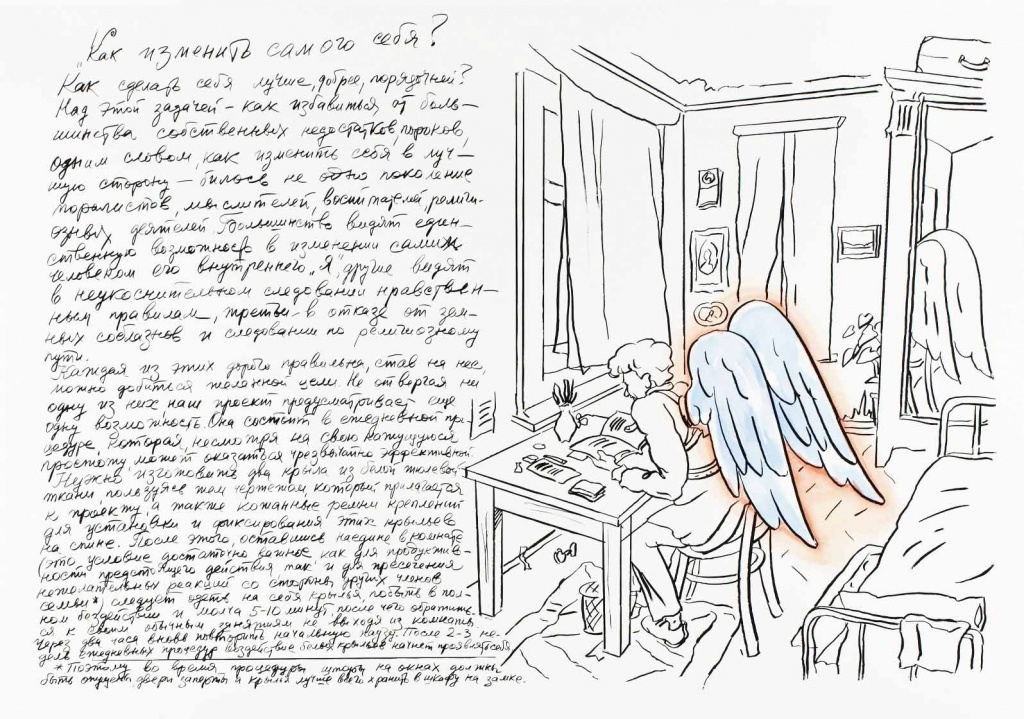 „Как изменить самого себя?
Как сделать себя лучше, добрее, порядочней?
Над этой задачей – как избавиться от боль–
шинства собственных недостатков, пороков,
одним словом, как изменить себя в луч–
шую сторону – билось не одно поколение
моралистов, мыслителей, воспитателей, религи–
озных деятелей. Большинство видят един–
ственную возможность в изменении самим
человеком его внутреннего „Я", другие видят
в неукоснительном следовании нравствен–
ным правилам, третьи – в отказе от зем–
ных соблазнов и следовании по религиозному
пути.
Каждая из этих дорог правильна, став на нее,
можно добиться желанной цели. Не отвергая ни
одну из них, наш проект предусматривает еще
одну возможность. Она состоит в ежедневной про–
цедуре, которая, несмотря на свою кажущуюся
простоту, может оказаться чрезвычайно эффективной.
Нужно изготовить два крыла из белой тюлевой
ткани пользуясь тем чертежом, который прилагается
к проекту, а также кожанные ремни креплений
для установки и фиксирования этих крыльев
на спине. После этого, оставшись наедине в комнате
(это условие достаточно важное как для продуктив–
ности предстоящего действия так и для пресечения
нежелательных реакций со стороны других членов
семьи*) следует одеть на себя крылья, побыть в пол–
ном бездействии и молча 5-10 минут, после чего обратить–
ся к своим обычным занятиям не выходя из комнаты.
Через два часа вновь повторить начальную паузу. После 2-3 не–
дель ежедневных процедур воздействие белых крыльев начнет проявляться
* Поэтому во время процедуры шторы на окнах должны
быть опущены двери заперты и крылья лучше всего хранить в шкафу на замке.